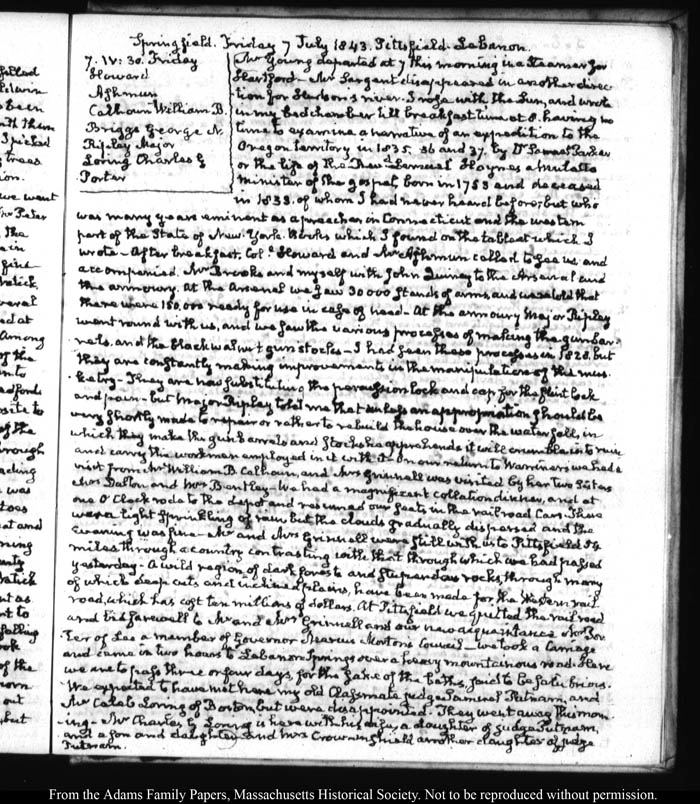 Springfield. Friday 7 July 1843. Pittsfield. Lebanon.
7. IV: 30. Friday
Howard
Ashmun
Calhoun William B.
Briggs George N.
Ripley Major
Loring Charles G
Porter
Mr Young departed at 7 this morning in a Steamer for
Hartford. Mr Sargent disappeared in another direc-
tion for river. I rose with the Sun, and wrote
in my bedchamber till breakfast time at 8. having no
time to examine a narrative of an expedition to the
Oregon territory in 1835. 36 and 37. by Dr Samuel Parker
or the life of the Revd Lemuel Haynes a mulatto
Minister of the Gospel, born in 1753 and deceased
in 1833. of whom I had never heard before; but who
was many years eminent as a preacher in Connecticut and the western
part of the State of New-York. Books which I found on the table at which I
wrote – After breakfast, Coll Howard and Mr Ashmun called to see us and
accompanied Mr Brooks and myself with John Quincy to the Arsenal and
the armoury. At the Arsenal we saw 30 000 Stands of arms, and was told that
there were 180,000 ready for use in case of need – At the armoury Major Ripley
went round with us, and we saw the various processes of making the gun bar-
rels, and the black walnut gun stocks – I had seen these processes in 1828. but
they are constantly making improvements in the manipulations of the mus-
ketry – They are now substituting the percussion lock and cap for the flint lock
and pan – but Major Ripley told me that unless an appropriation should be
very shortly made to repair or rather to rebuild the house over the water fall, in
which they make the gun barrels and stocks he apprehends it will crumble into ruin
and carry the workmen employed in it with it – On our return to Warriners we had a
visit from Mr William B. Calhoun, and Mrs Grinnell was visited by her two Sisters
Mrs Dalton and Mrs Bentley – We had a magnificent collation dinner, and at
one O'Clock rode to the depot and resumed our seats in the railroad Cars. There
was a light sprinkling of rain but the clouds gradually dispersed and the
Evening was fine – Mr and Mrs Grinnell were still with us to Pittsfield 54
miles through a country contrasting with that through which we had passed
yesterday – A wild region of dark forests and stupendous rocks, through many
of which deep cuts and inclined plains, have been made for the Western rail
road, which has cost ten millions of dollars. At Pittsfield we quitted the railroad
and bid farewell to Mr and Mrs Grinnell and our new acquaintance Mr Por
ter of Lee a member of Governor Marcus Morton's Council – we took a Carriage
and came in two hours to Lebanon Springs over a heavy mountainous road. Here
we are to pass three or four days, for the sake of the baths, said to be salubrious.
We expected to have met here my old Classmate judge Samuel Putnam, and
Mr Caleb Loring of Boston, but were disappointed. They went away this morn-
ing – Mr Charles G Loring is here with his wife, a daughter of judge Putnam,
and a son and daughter. and Mrs Crowninshield another daughter of judge
Putnam.
From the Adams Family Papers, Massachusetts Historical Society. Not to be reproduced without permission.